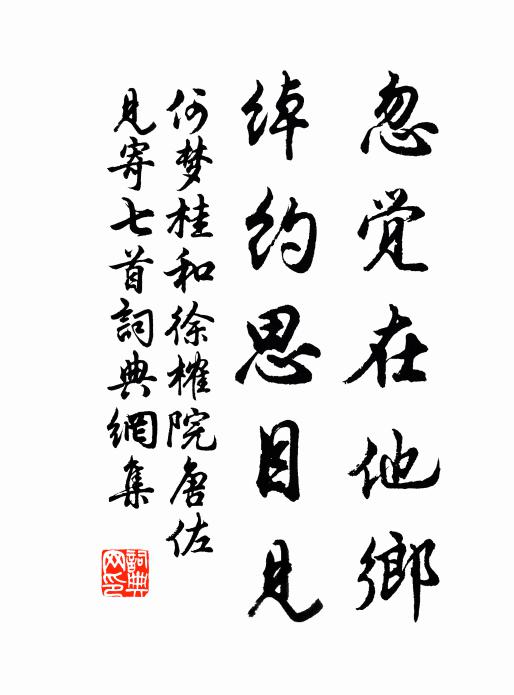 忽觉在他鄉
绰约思目见
何梦桂和徐榷院唐佐
见寄七首詞典網集
詞典網印